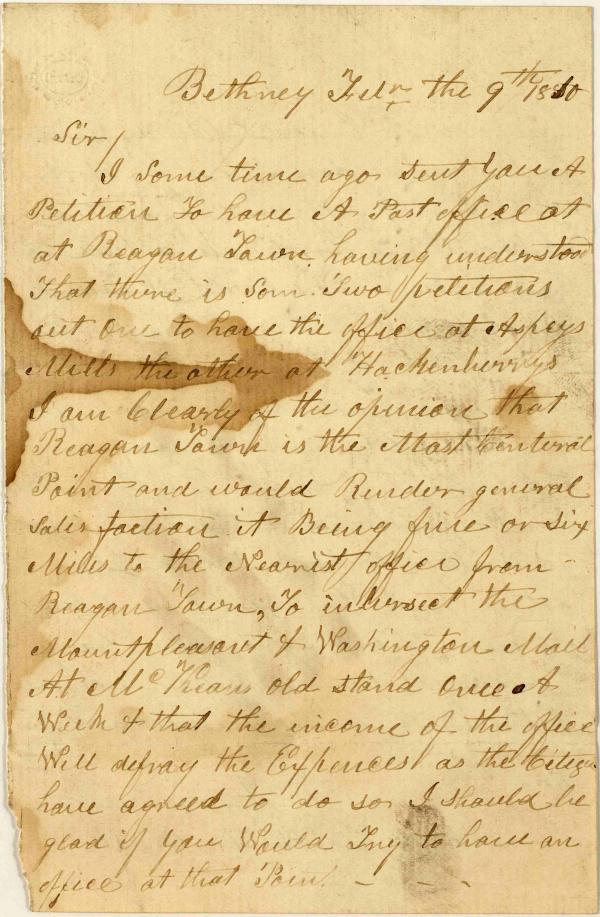 Bethney Febr the 9th 1850
Sir /
I Some time ago Sent You A
Petition To have A Post office at
at Reagan Town having understood
That there is Som Two petitions
out One to have the office at Aspeys
Mills the other at Hackenberrys
I am Clearly of the opinion that
Reagan Town is the Most Centeral
Point and would Render general
Satisfaction it Being five or Six
Miles to the Nearist office from
Reagan Town, To intersect the
Mountpleasant & Washington Mail
At McKeans old stand Once A
Week & that the income of the office
Will defray the Expences as the Citizens
have agreed to do so I Should be
glad if you Would Try to have an
office at that Point. - - -